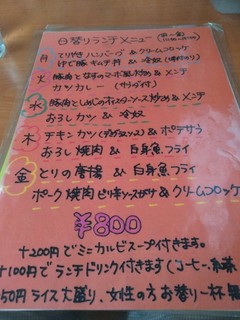 日替りランチメニュー (月〜金)
月 てりやきハンバーグ & クリームコロッケ
ゆで豚キムチ丼 & 冷奴
火 豚肉となすのマーボ風炒め & メンチ
カツカレー (サラダ付)
水 豚肉としめじのオイスターソース炒め & メンチ
おろしカツ & 冷奴
木 チキンカツ & ポテサラ
おろし焼肉 & 白身魚フライ
金 とりの唐揚 & 白身魚フライ
ポーク焼肉ピリ辛ソースがけ & クリームコロッケ
¥800
+200円でミニカルビスープ付きます。
+100円でランチドリンク付きます(コーヒー、紅茶
50円ライス大盛り、女性の方お替り一杯無